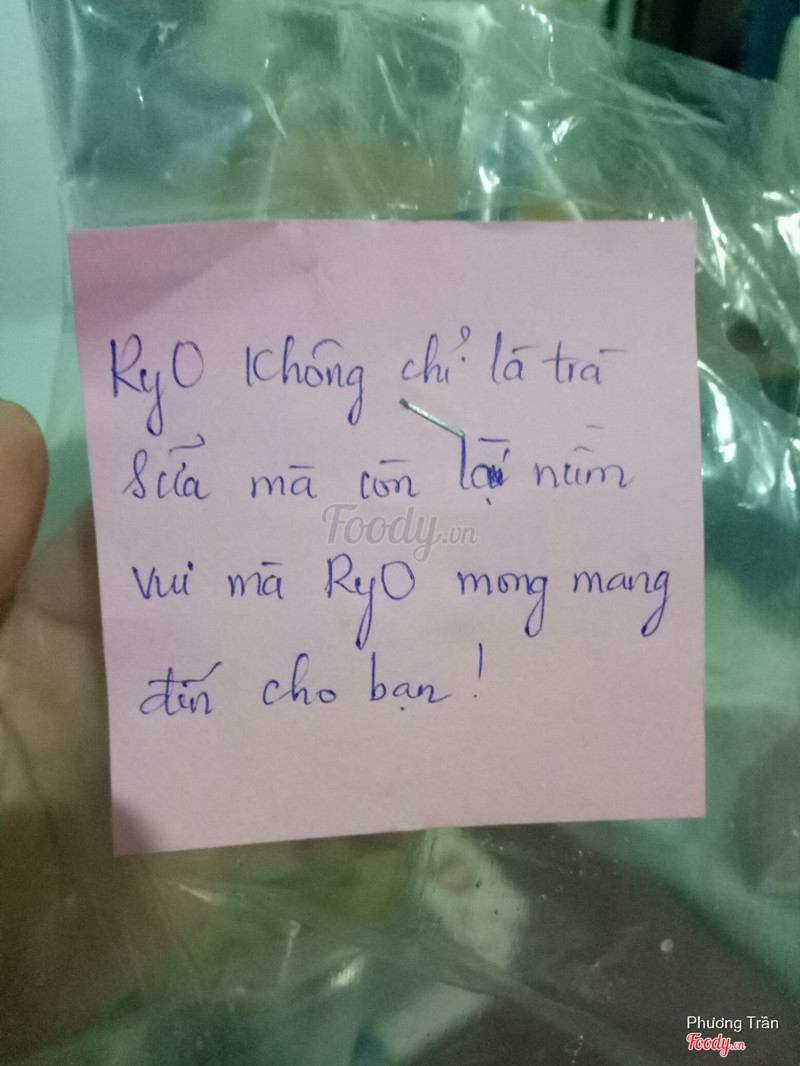 RyO Không chỉ là trà
sữa mà còn là niềm
vui mà RyO mong mang
đến cho bạn!
Foody.vn
Phương Trần
Foody.vn